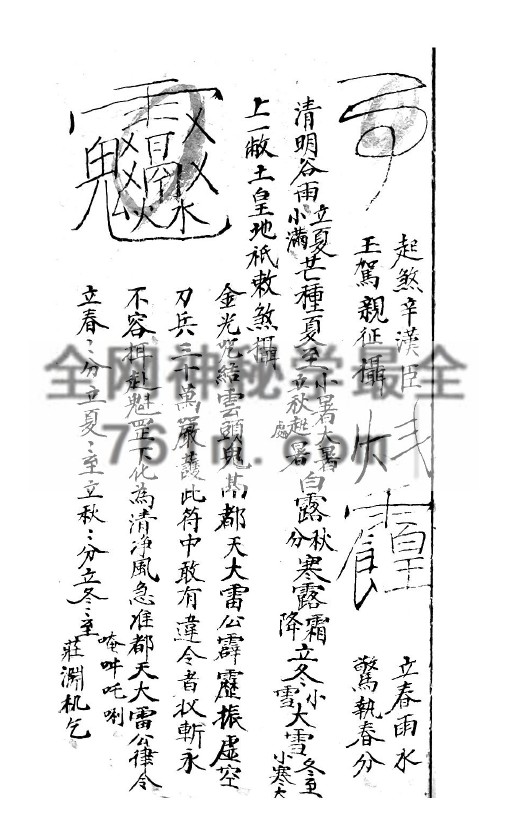 起煞辛漢臣
立春雨水
王駕親征攝
驚執春分
清明谷雨立夏小滿芒種夏至小暑大暑立秋處暑白露秋分寒露霜降立冬小雪大雪冬至小寒大
上一敝土皇地祇敕煞攝
金光咒結雲頭鬼
都天大雷公霹靂振虛空
刀兵三十萬嚴護此符中敢有違令者收斬永
不容
魁罡下化為清淨風急准都天大雷公律令
唵吽吒唎
立春〻分立夏〻至立秋〻分立冬〻至
莊淵机乞
全网神秘学最全
761n.com